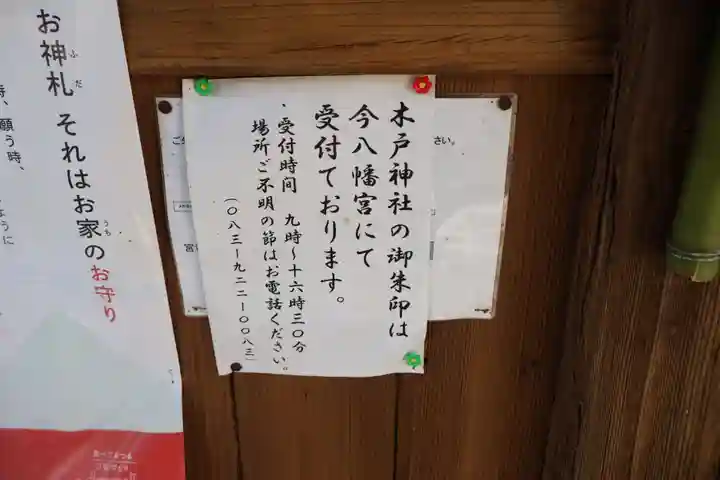 木戸神社の御朱印は
今八幡宮にて
受付ております。
・受付時間 九時～十六時三〇分
場所ご不明の節はお電話ください。
(〇八三ー九二二ー〇〇八三)
さい。
お神札 それはお家のお守り
ふだ
うち
願う時、